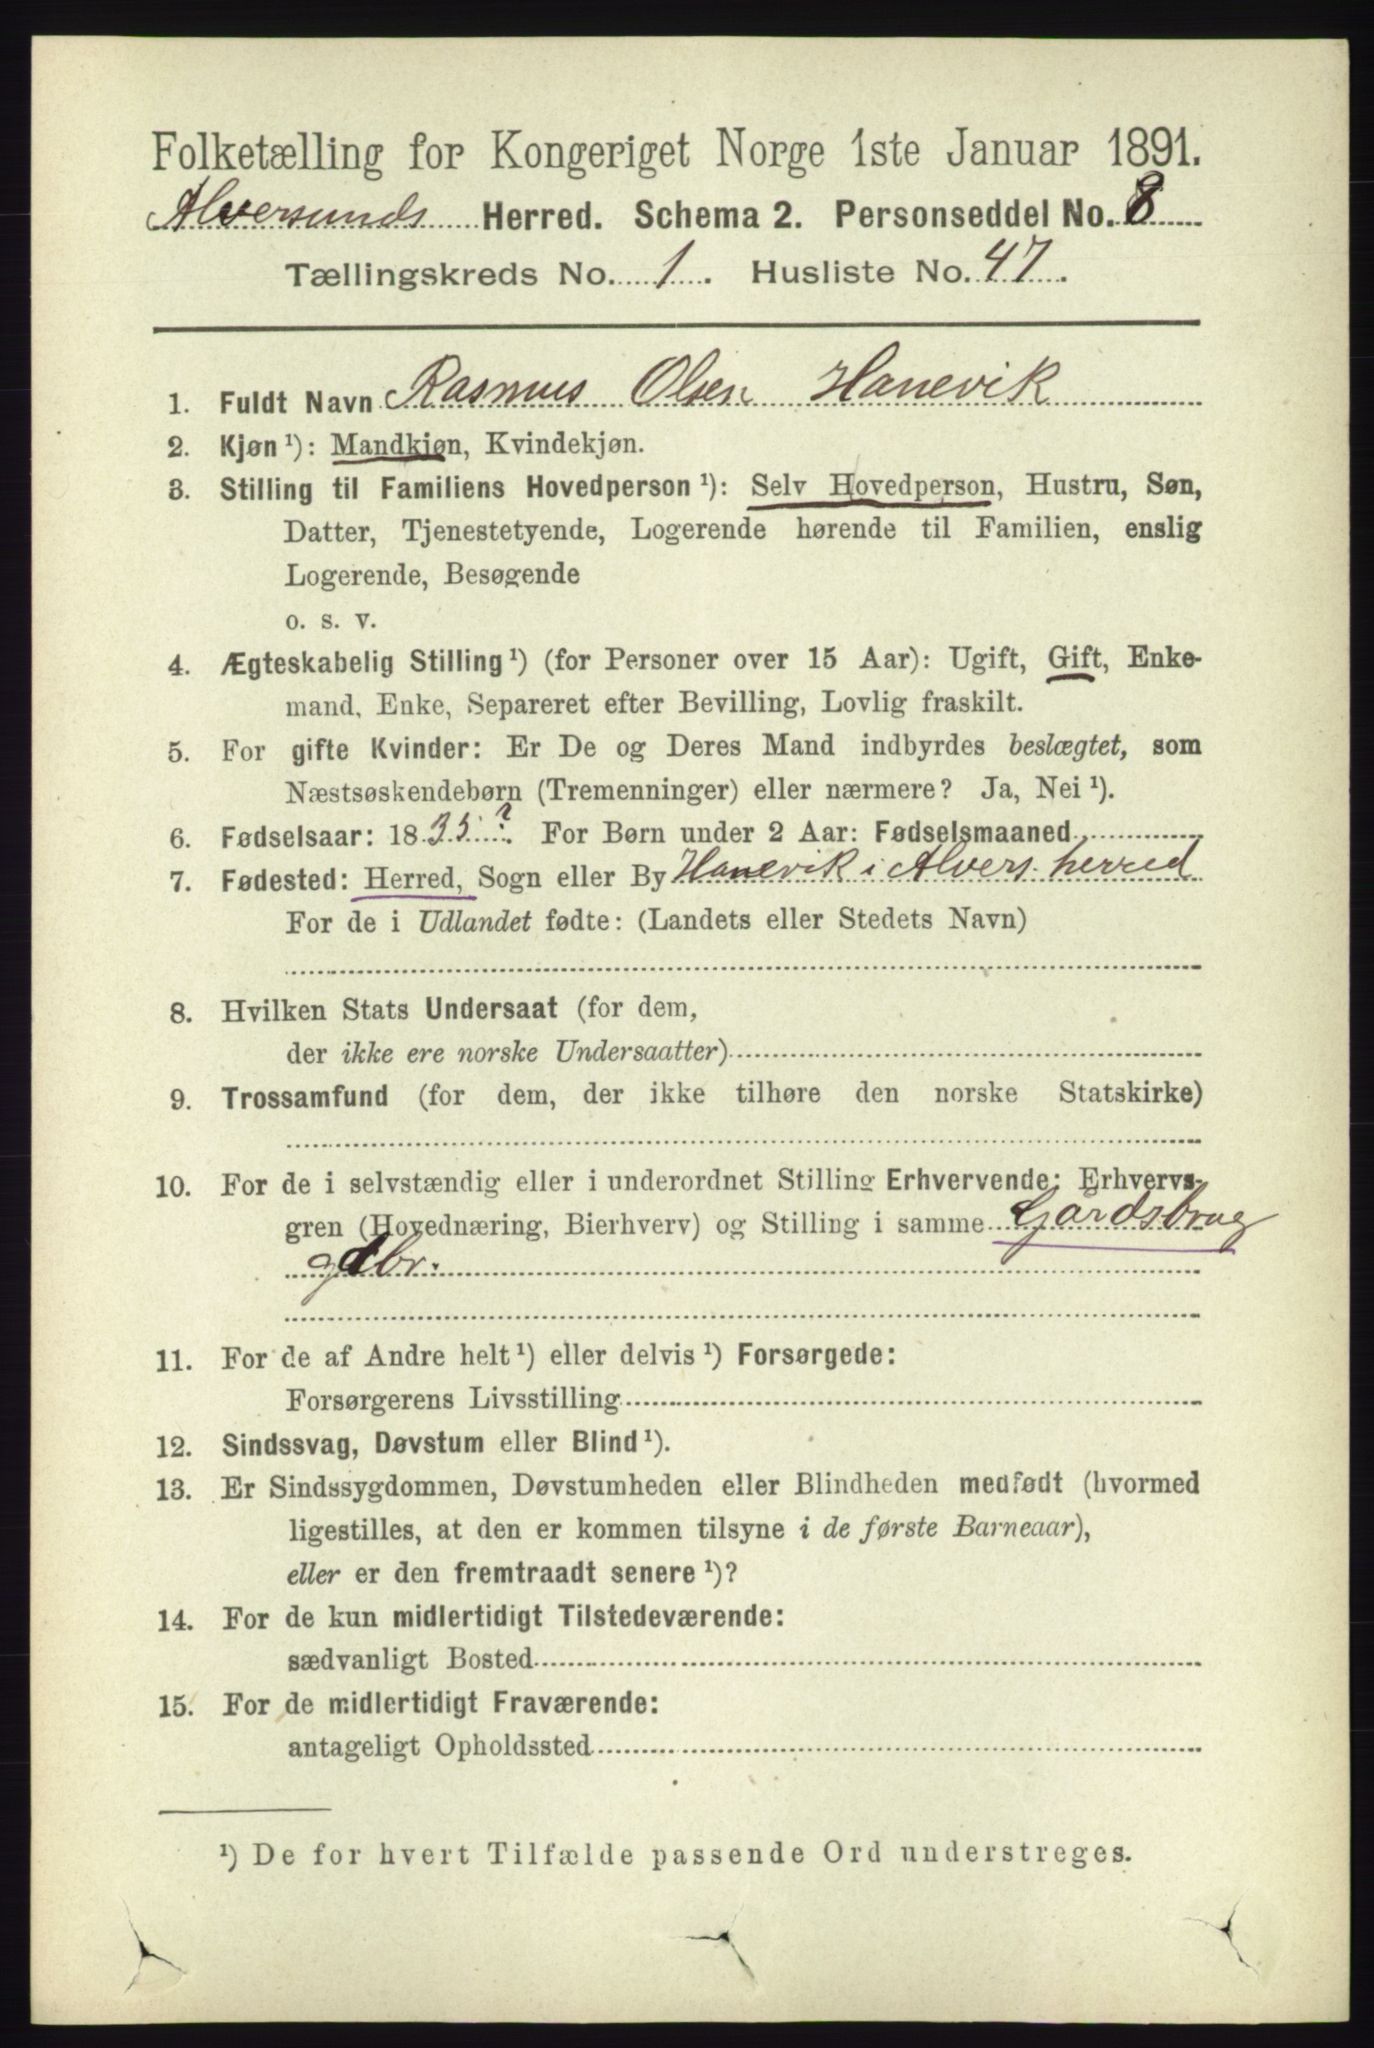 Folketælling for Kongeriget Norge 1ste Januar 1891.
Alversunds Herred. Schema 2. Personseddel No. 8
Tællingskreds No. 1. Husliste No. 47.
1. Fuldt Navn Rasmus Olsen Hanevik
2. Kjøn ¹): Mandkjøn, Kvindekjøn.
3. Stilling til Familiens Hovedperson ¹): Selv Hovedperson, Hustru, Søn,
Datter, Tjenestetyende, Logerende hørende til Familien, enslig
Logerende, Besøgende
o. s. v.
4. Ægteskabelig Stilling ¹) (for Personer over 15 Aar): Ugift, Gift, Enke-
mand, Enke, Separeret efter Bevilling, Lovlig fraskilt.
5. For gifte Kvinder: Er De og Deres Mand indbyrdes beslægtet, som
Næstsøskendebørn (Tremenninger) eller nærmere? Ja, Nei ¹).
6. Fødselsaar: 1835? For Børn under 2 Aar: Fødselsmaaned
7. Fødested: Herred, Sogn eller By Hanevik i Alvers. herred
For de i Udlandet fødte: (Landets eller Stedets Navn)
8. Hvilken Stats Undersaat (for dem,
der ikke ere norske Undersaatter)
9. Trossamfund (for dem, der ikke tilhøre den norske Statskirke)
10. For de i selvstændig eller i underordnet Stilling Erhvervende: Erhvervs-
gren (Hovednæring, Bierhverv) og Stilling i samme Gårdsbrug
gdbr.
11. For de af Andre helt ¹) eller delvis ¹) Forsørgede:
Forsørgerens Livsstilling
12. Sindssvag, Døvstum eller Blind ¹).
13. Er Sindssygdommen, Døvstumheden eller Blindheden medfødt (hvormed
ligestilles, at den er kommen tilsyne i de første Barneaar),
eller er den fremtraadt senere ¹)?
14. For de kun midlertidigt Tilstedeværende:
sædvanligt Bosted
15. For de midlertidigt Fraværende:
antageligt Opholdssted
¹) De for hvert Tilfælde passende Ord understreges.